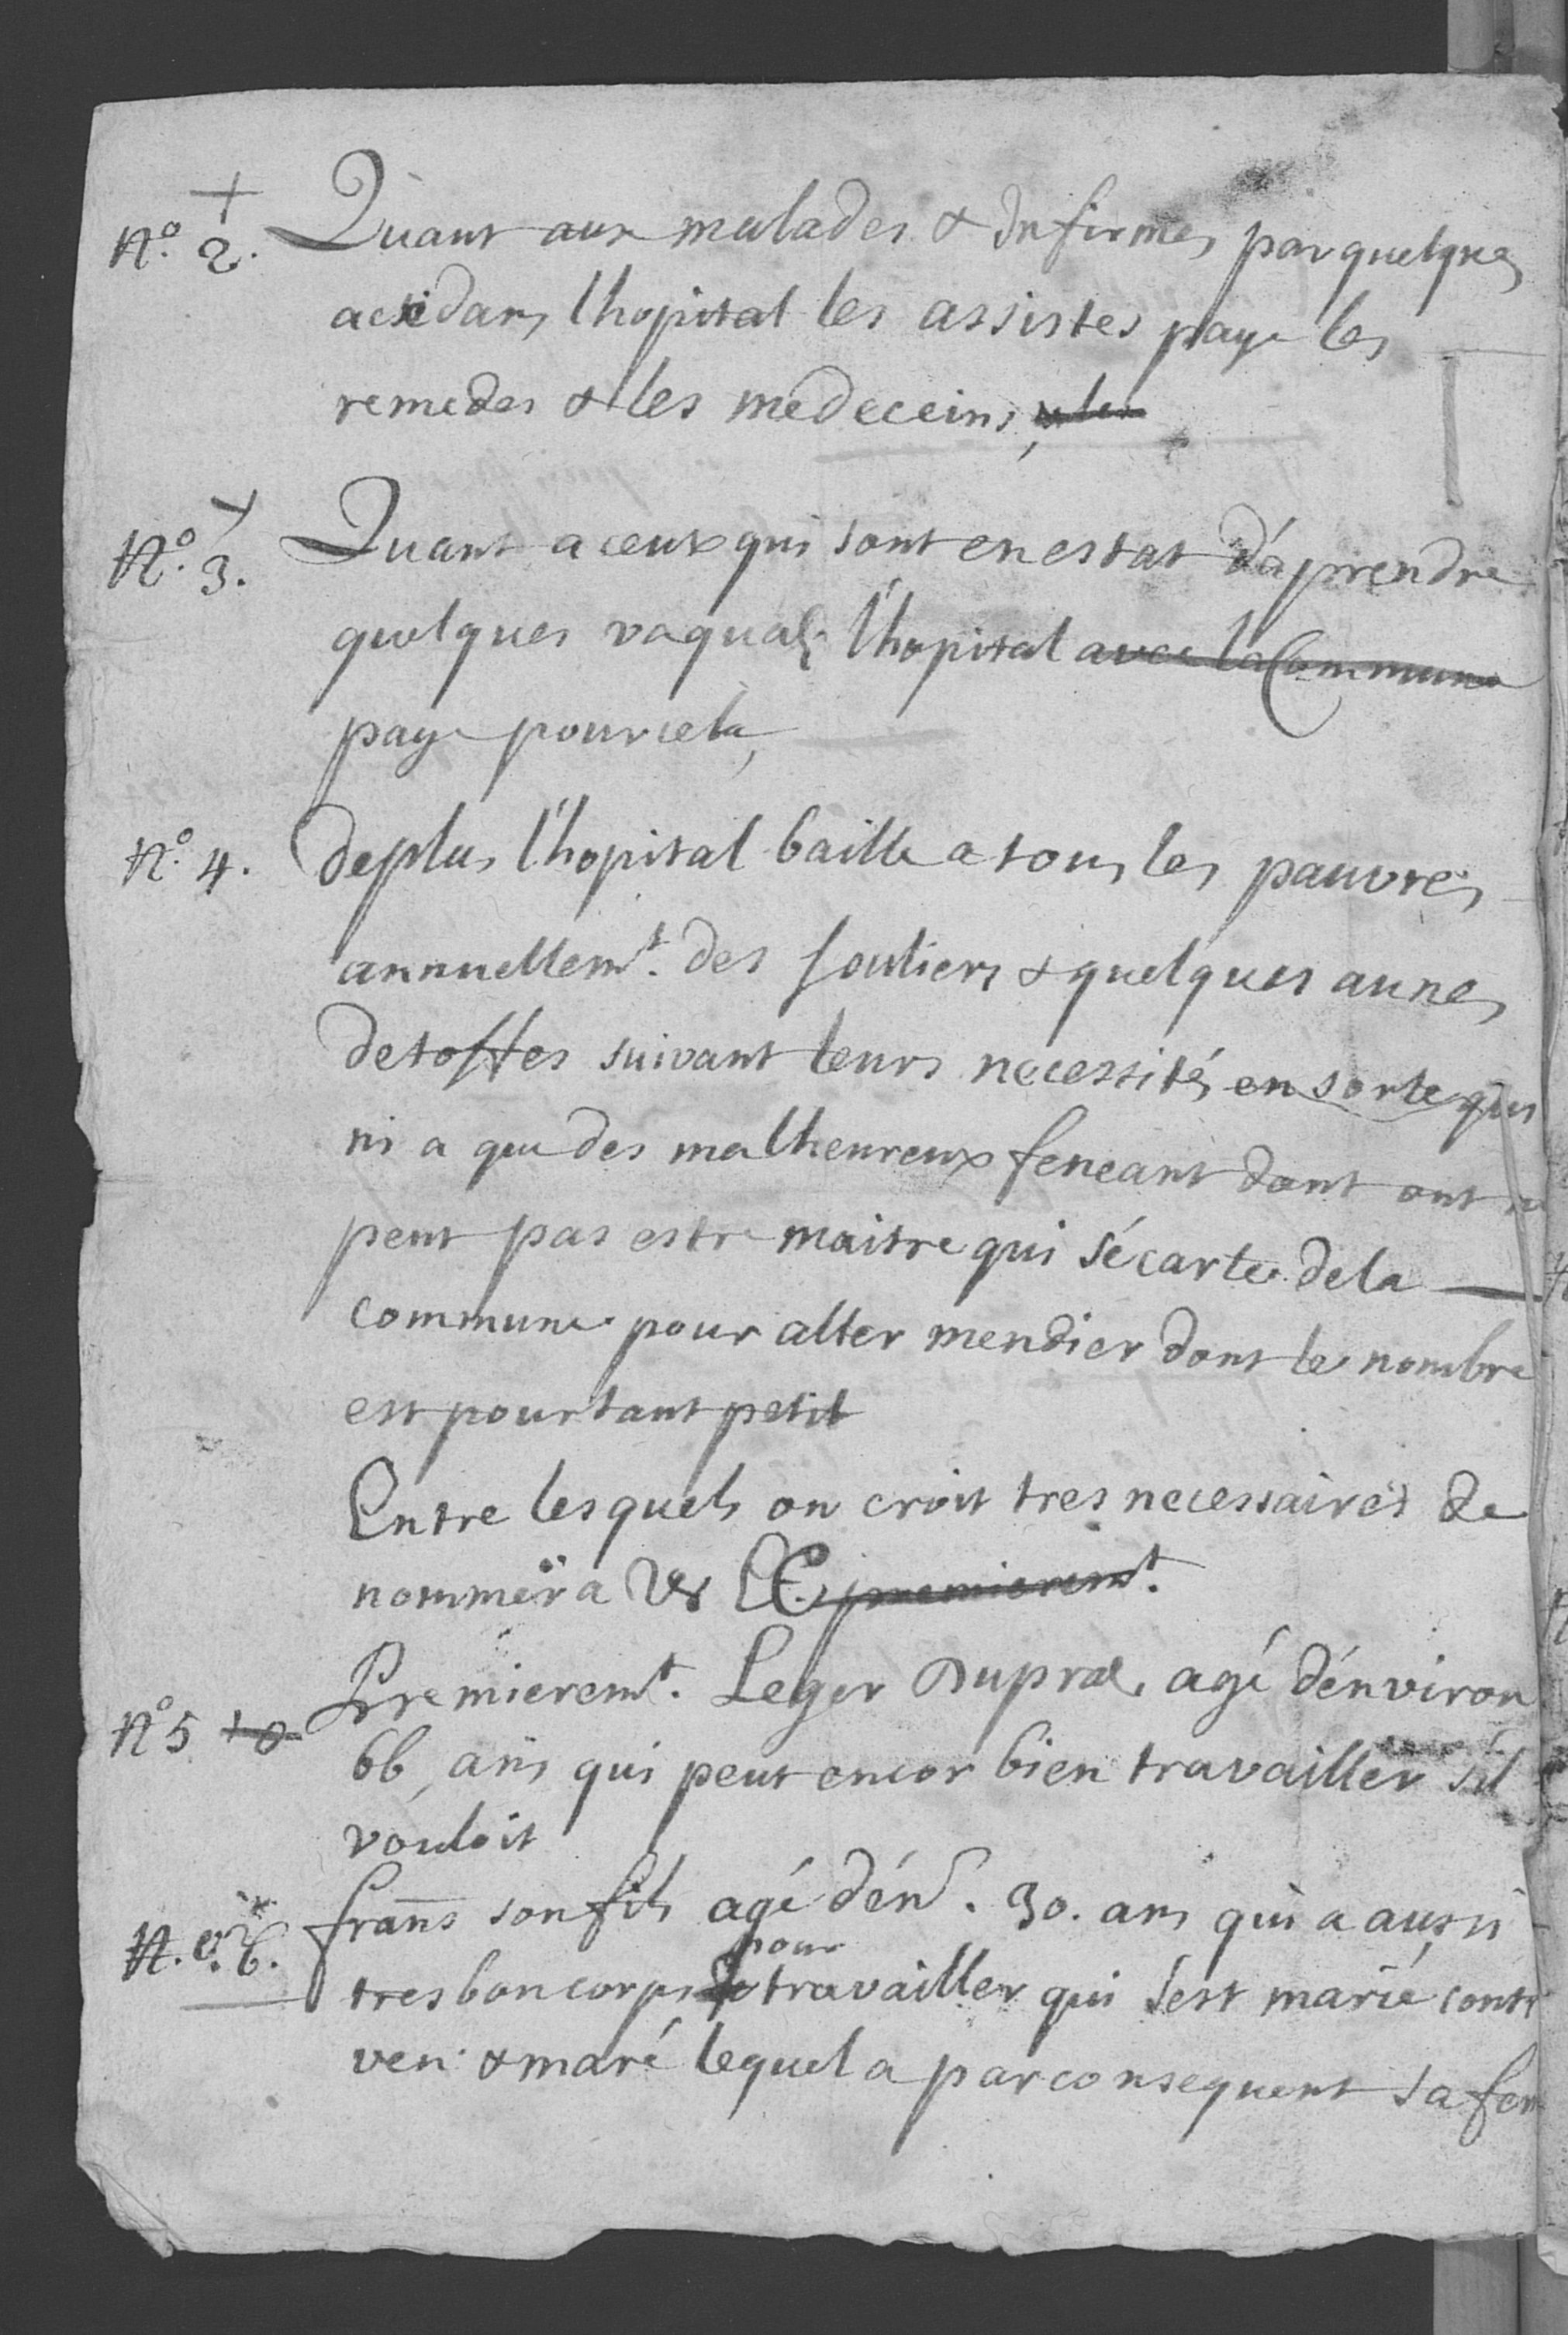 N.° 2. Quant aux malades & Infirmes par quelques
accidans l'hopital les assistes paye les
remedes & les medeceins, & les
N.° 3. Quant a ceux qui sont en estat d'aprendre
quelques vaquals l'hopital avec la Commune
paye pour cela,
N.° 4. de plus l'hopital baille a tous les pauvres
annuellemt. des souliers & quelques aunes
detoffes suivant leurs necessités en sorte qui
ni a que des malheureux feneant dont ont n
peut pas estre maitre qui sécarte de la
commune pour aller mendier dont le nombre
est pourtant petit
Entre lesquels on croit tres necessaires de
nommer a VV EE. premieremt.
N° 5 Premieremt. Leger Dupra agé dénviron
66, ans qui peut encor bien travailler sil
vouloit
N.° 6. frans son fils agé dén. 30. ans qui a aussi
pour
tres bon corps de travailler qui sest marié cont
ven & maré lequel a par consequent sa fem